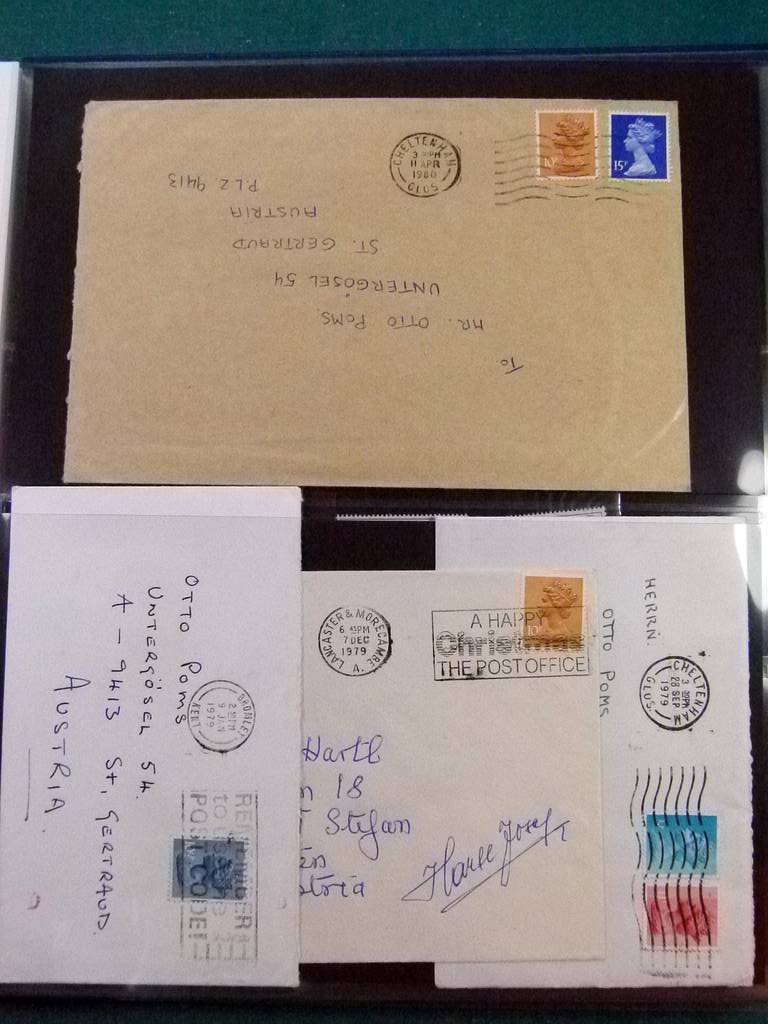 CHELTENHAM
3 PM
11 APR
1980
GLOS
15P
To
MR. OTTO POMS
UNTERGÖSEL 54
ST. GERTRAUD
AUSTRIA
PLZ 9413
OTTO POMS
UNTERGÖSEL 54
A - 9413 St. GERTRAUD
AUSTRIA
BROMLEY
9 JAN
1979
KENT
REMEMBER
to use
POSTCODE
LANCASTER & MORECAMBE
6 45PM
7 DEC
1979
A.
A HAPPY
Christmas
THE POST OFFICE
Hartl
18
Stefan
stria
HERRN.
OTTO POMS
CHELTENHAM
28 SEP
1979
GLOS